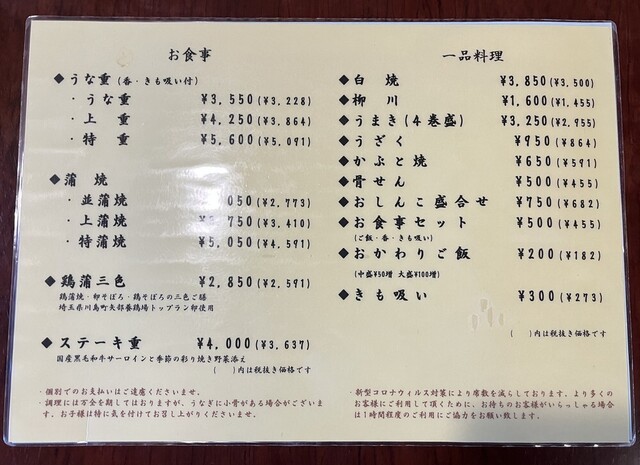 お食事
◆うな重(香・きも吸い付)
・うな重 ¥3,550(¥3,228)
・上重 ¥4,250(¥3,864)
・特重 ¥5,600(¥5,091)
◆蒲焼
・並蒲焼 050(¥2,773)
・上蒲焼 750(¥3,410)
・特蒲焼 ¥5,050(¥4,591)
◆鶏蒲三色 ¥2,850(¥2,591)
鶏蒲焼・卵そぼろ・鶏そぼろの三色ご膳
埼玉県川島町矢部養鶏場トップラン卵使用
◆ステーキ重 ¥4,000(¥3,637)
国産黒毛和牛サーロインと季節の彩り焼き野菜添え
( )内は税抜き価格です
・個別でのお支払いはご遠慮くださいませ。
・調理には万全を期してはおりますが、うなぎに小骨がある場合がございます、お子様は特に気を付けてお召し上がりくださいませ。
一品料理
◆白焼 ¥3,850(¥3,500)
◆柳川 ¥1,600(¥1,455)
◆うまき(4巻盛) ¥3,250(¥2,955)
◆うざく ¥950(¥864)
◆かぶと焼 ¥650(¥591)
◆骨せん ¥500(¥455)
◆おしんこ盛合せ ¥750(¥682)
◆お食事セット ¥500(¥455)
(ご飯・香・きも吸い)
◆おかわりご飯 ¥200(¥182)
(中盛¥50増 大盛¥100増)
◆きも吸い ¥300(¥273)
( )内は税抜き価格です
・新型コロナウィルス対策により席数を減らしております、より多くの
お客様にご利用して頂くために、お待ちのお客様がいらっしゃる場合
は1時間程度のご利用にご協力をお願い致します。